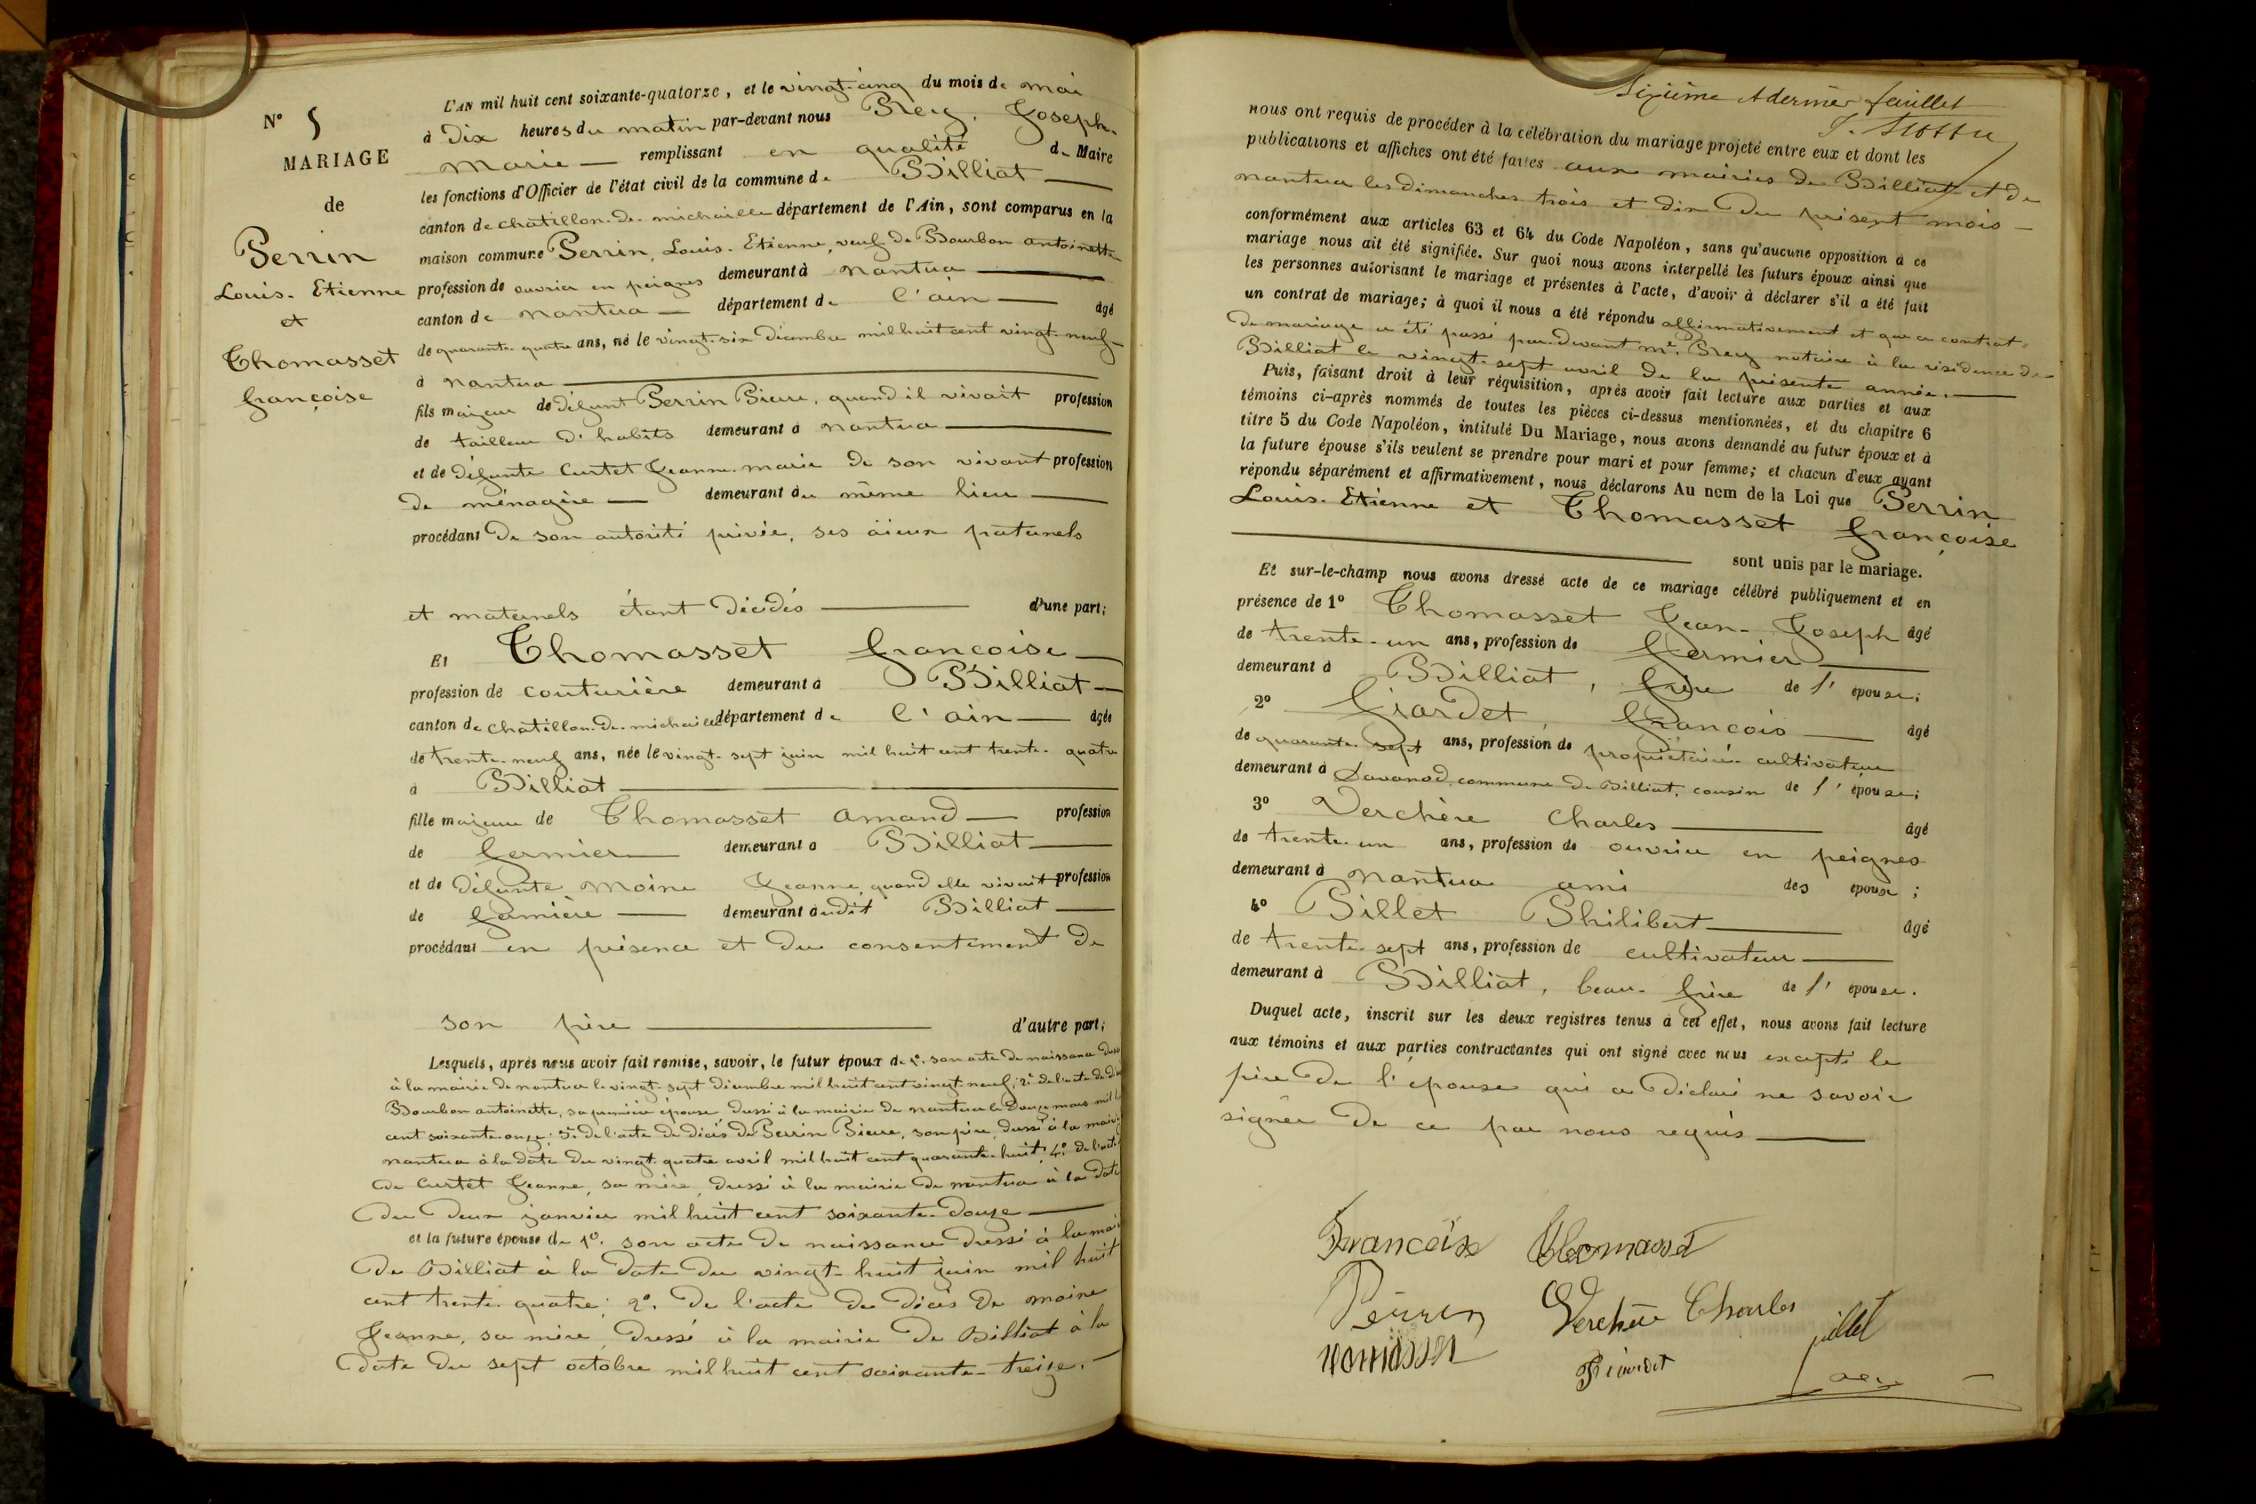 N° 5
MARIAGE
de
Perrin
Louis-Etienne
et
Thomasset
françoise
L'AN mil huit cent soixante-quatorze, et le vingt-cinq du mois de mai
à Dix heures du matin par-devant nous Rey, Joseph-
Marie — remplissant en qualité de Maire
les fonctions d'Officier de l'état civil de la commune de Billiat —
canton de chatillon-de-michaille département de l'Ain, sont comparus en la
maison commune Perrin, Louis-Etienne, veuf de Bourbon antoinette
profession de ouvrier en peignes demeurant à nantua —
canton de nantua — département de l'ain — âgé
de quarante-quatre ans, né le vingt-six décembre mil huit cent vingt-neuf —
à nantua —
fils majeur de défunt Perrin Pierre, quand il vivait profession
de tailleur d'habits demeurant à nantua —
et de défunte Curtet Jeanne-marie de son vivant profession
de ménagère — demeurant au même lieu —
procédant de son autorité privée, ses aïeux paternels
et maternels étant décédés — d'une part;
Et Thomasset françoise —
profession de couturière demeurant à Billiat —
canton de chatillon-de-michaille département de l'ain — âgée
de trente-neuf ans, née le vingt-sept juin mil huit cent trente-quatre
à Billiat —
fille majeure de Thomasset amand — profession
de fermier — demeurant à Billiat —
et de défunte Moine Jeanne, quand elle vivait profession
de fermière — demeurant audit Billiat —
procédant en présence et du consentement de
son père — d'autre part;
Lesquels, après nous avoir fait remise, savoir, le futur époux de 1°. son acte de naissance dressé
à la mairie de nantua le vingt-sept décembre mil huit cent vingt-neuf; 2°. de l'acte de
Bourbon antoinette, sa première épouse, dressé à la mairie de nantua le douze mars mil
cent soixante-onze; 3°. de l'acte de décès de Perrin Pierre, son père, dressé à la mairie
nantua à la date du vingt-quatre avril mil huit cent quarante-huit; 4°. de l'acte
de Curtet Jeanne, sa mère, dressé à la mairie de nantua à la date
du deux janvier mil huit cent soixante-douze —
et la future épouse de 1°. son acte de naissance dressé à la mairie
de Billiat à la date du vingt-huit juin mil huit
cent trente-quatre; 2°. de l'acte de décès de moine
Jeanne, sa mère, dressé à la mairie de Billiat à la
date du sept octobre mil huit cent soixante-treize. —
Sixième et dernier feuillet
nous ont requis de procéder à la célébration du mariage projeté entre eux et dont les
publications et affiches ont été faites aux mairies de Billiat et de
nantua les dimanches trois et dix du présent mois —
conformément aux articles 63 et 64 du Code Napoléon, sans qu'aucune opposition à ce
mariage nous ait été signifiée. Sur quoi nous avons interpellé les futurs époux ainsi que
les personnes autorisant le mariage et présentes à l'acte, d'avoir à déclarer s'il a été fait
un contrat de mariage; à quoi il nous a été répondu affirmativement et que ce contrat
de mariage a été passé par-devant Me. Rey notaire à la résidence de
Billiat le vingt-sept avril de la présente année. —
Puis, faisant droit à leur réquisition, après avoir fait lecture aux parties et aux
témoins ci-après nommés de toutes les pièces ci-dessus mentionnées, et du chapitre 6
titre 5 du Code Napoléon, intitulé Du Mariage, nous avons demandé au futur époux et à
la future épouse s'ils veulent se prendre pour mari et pour femme; et chacun d'eux ayant
répondu séparément et affirmativement, nous déclarons Au nom de la Loi que Perrin
Louis-Etienne et Thomasset françoise
— sont unis par le mariage.
Et sur-le-champ nous avons dressé acte de ce mariage célébré publiquement et en
présence de 1° Thomasset Jean-Joseph âgé
de trente-un ans, profession de fermier —
demeurant à Billiat, frère de l'épouse;
2° Girardet, françois — âgé
de quarante-sept ans, profession de propriétaire-cultivateur
demeurant à Davanod commune de Billiat, cousin de l'épouse;
3° Verchère Charles — âgé
de trente-un ans, profession de ouvrier en peignes
demeurant à nantua ami des époux;
4° Pillet Philibert — âgé
de trente-sept ans, profession de cultivateur —
demeurant à Billiat, beau-frère de l'épouse.
Duquel acte, inscrit sur les deux registres tenus à cet effet, nous avons fait lecture
aux témoins et aux parties contractantes qui ont signé avec nous excepté le
père de l'épouse qui a déclaré ne savoir
signer de ce par nous requis —
Thomasset
Perrin Verchère Charles
pillet
Rey